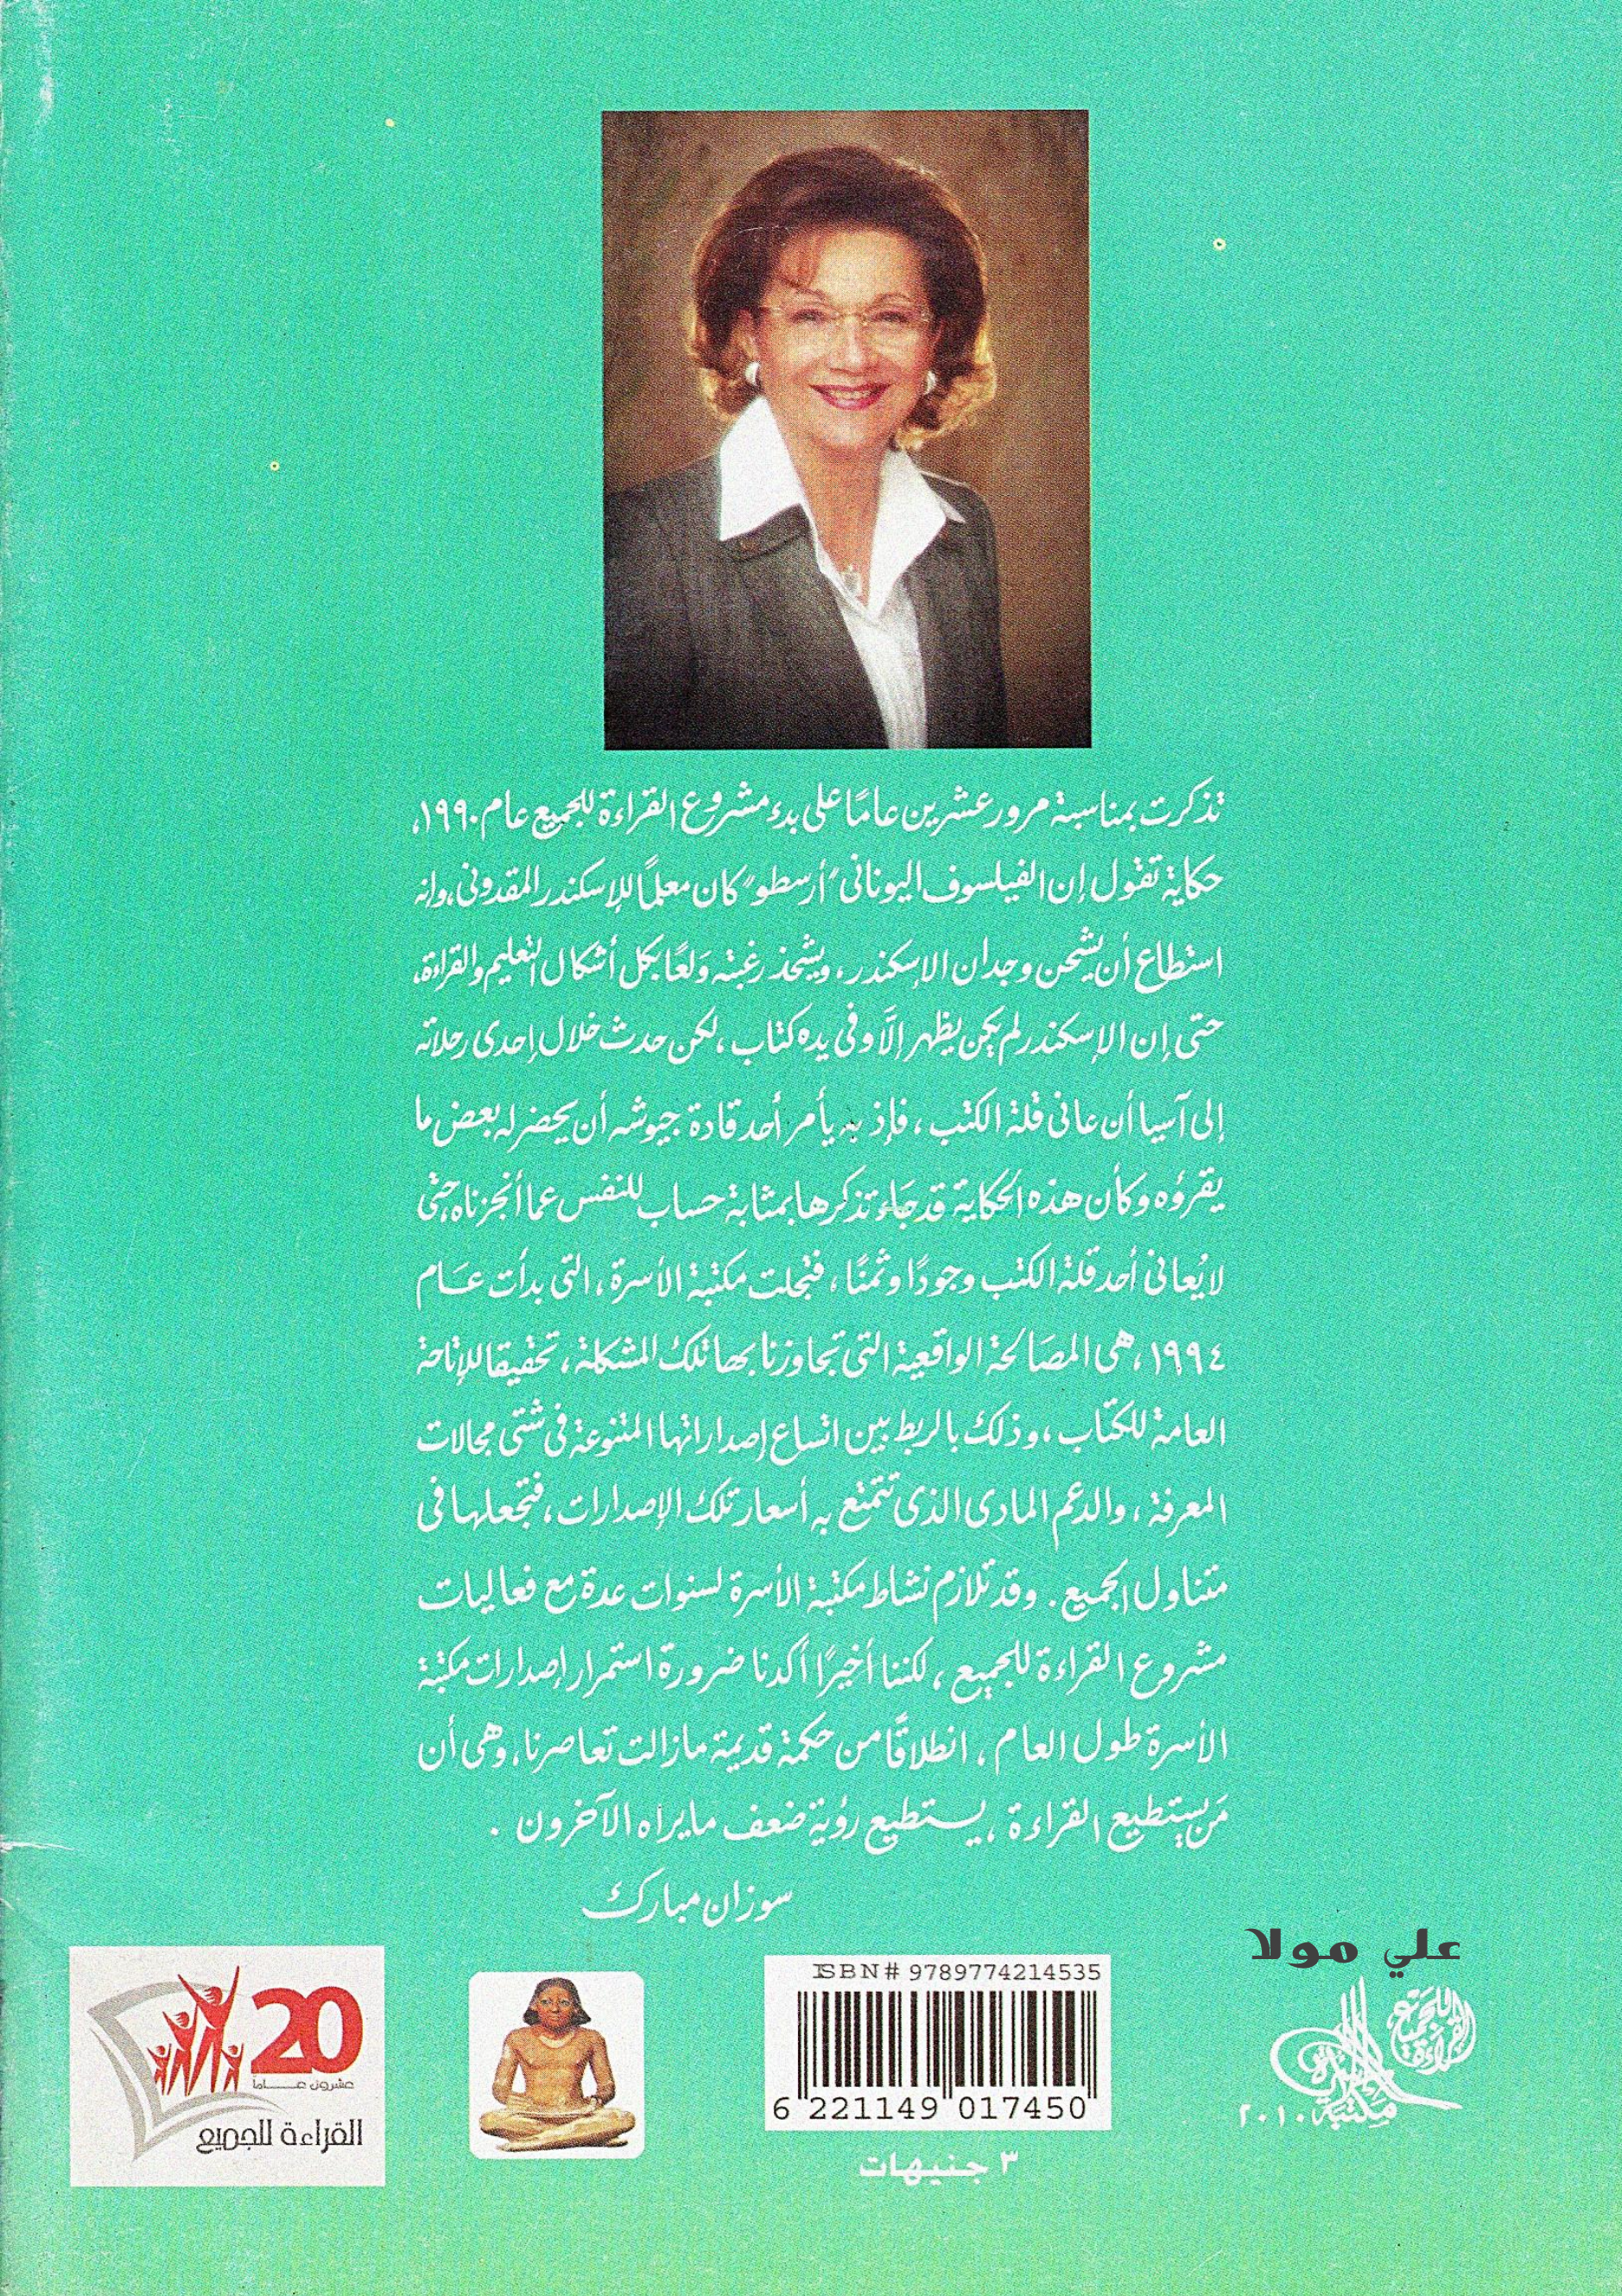 تذكرت بمناسبة مرور عشرين عامًا على بدء مشروع القراءة للجميع عام ١٩٩٠،
حكاية تقول إن الفيلسوف اليونانى "أرسطو" كان معلمًا للإسكندر المقدونى، وإنه
استطاع أن يشحن وجدان الإسكندر، ويشحذ رغبته وَلعًا بكل أشكال التعليم والقراءة،
حتى إن الإسكندر لم يكن يظهر إلَّا وفى يده كتاب، لكن حدث خلال إحدى رحلاته
إلى آسيا أن عانى قلة الكتب، فإذ به يأمر أحد قادة جيوشه أن يحضر له بعض ما
يقرؤه وكأن هذه الحكاية قد جَاء تذكرها بمثابة حساب للنفس عما أنجزناه، حتى
لا يُعانى أحد قلة الكتب وجودًا وثمنًا، فتجلت مكتبة الأسرة، التى بدأت عَام
١٩٩٤، هى المصَالحة الواقعية التى تجاوزنا بها تلك المشكلة، تحقيقا للإتاحة
العامة للكتاب، وذلك بالربط بين اتساع إصداراتها المتنوعة فى شتى مجالات
المعرفة، والدعم المادى الذى تتمتع به أسعار تلك الإصدارات، فتجعلها فى
متناول الجميع. وقد تلازم نشاط مكتبة الأسرة لسنوات عدة مع فعاليات
مشروع القراءة للجميع، لكننا أخيرًا أكدنا ضرورة استمرار إصدارات مكتبة
الأسرة طول العام، انطلاقًا من حكمة قديمة مازالت تعاصرنا، وهى أن
مَن يستطيع القراءة، يستطيع رؤية ضعف ما يراه الآخرون.
سوزان مبارك
علي مولا
ISBN# 9789774214535
6 221149 017450
٣ جنيهات
20
عشرون عــاماً
القراءة للجميع
القراءة للجميع
مكتبة الأسرة
٢٠١٠